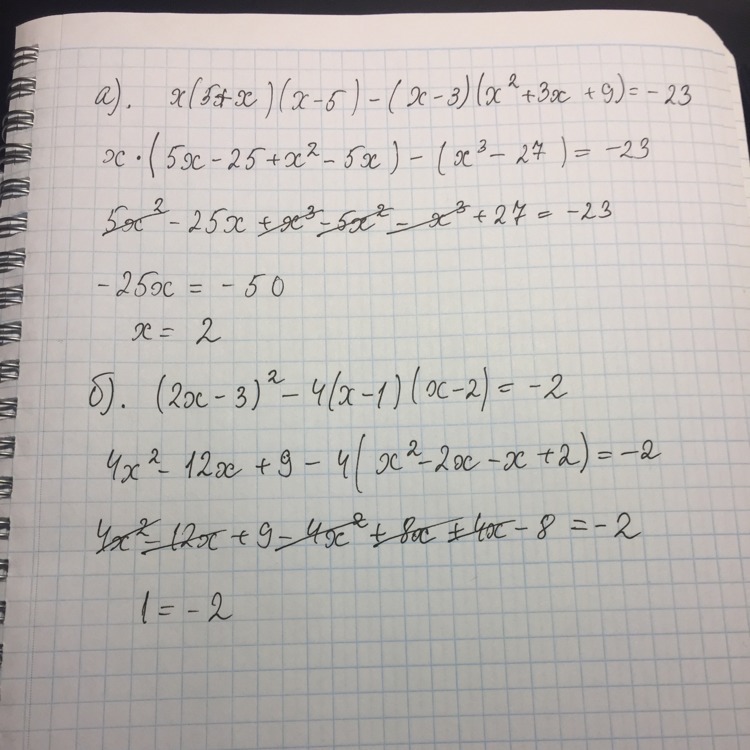 а). x(5+x)(x-5)-(x-3)(x²+3x+9)=-23
x·(5x-25+x²-5x)-(x³-27)=-23
5x²-25x+x³-5x²-x³+27=-23
-25x=-50
x=2
б). (2x-3)²-4(x-1)(x-2)=-2
4x²-12x+9-4(x²-2x-x+2)=-2
4x²-12x+9-4x²+8x+4x-8=-2
1=-2